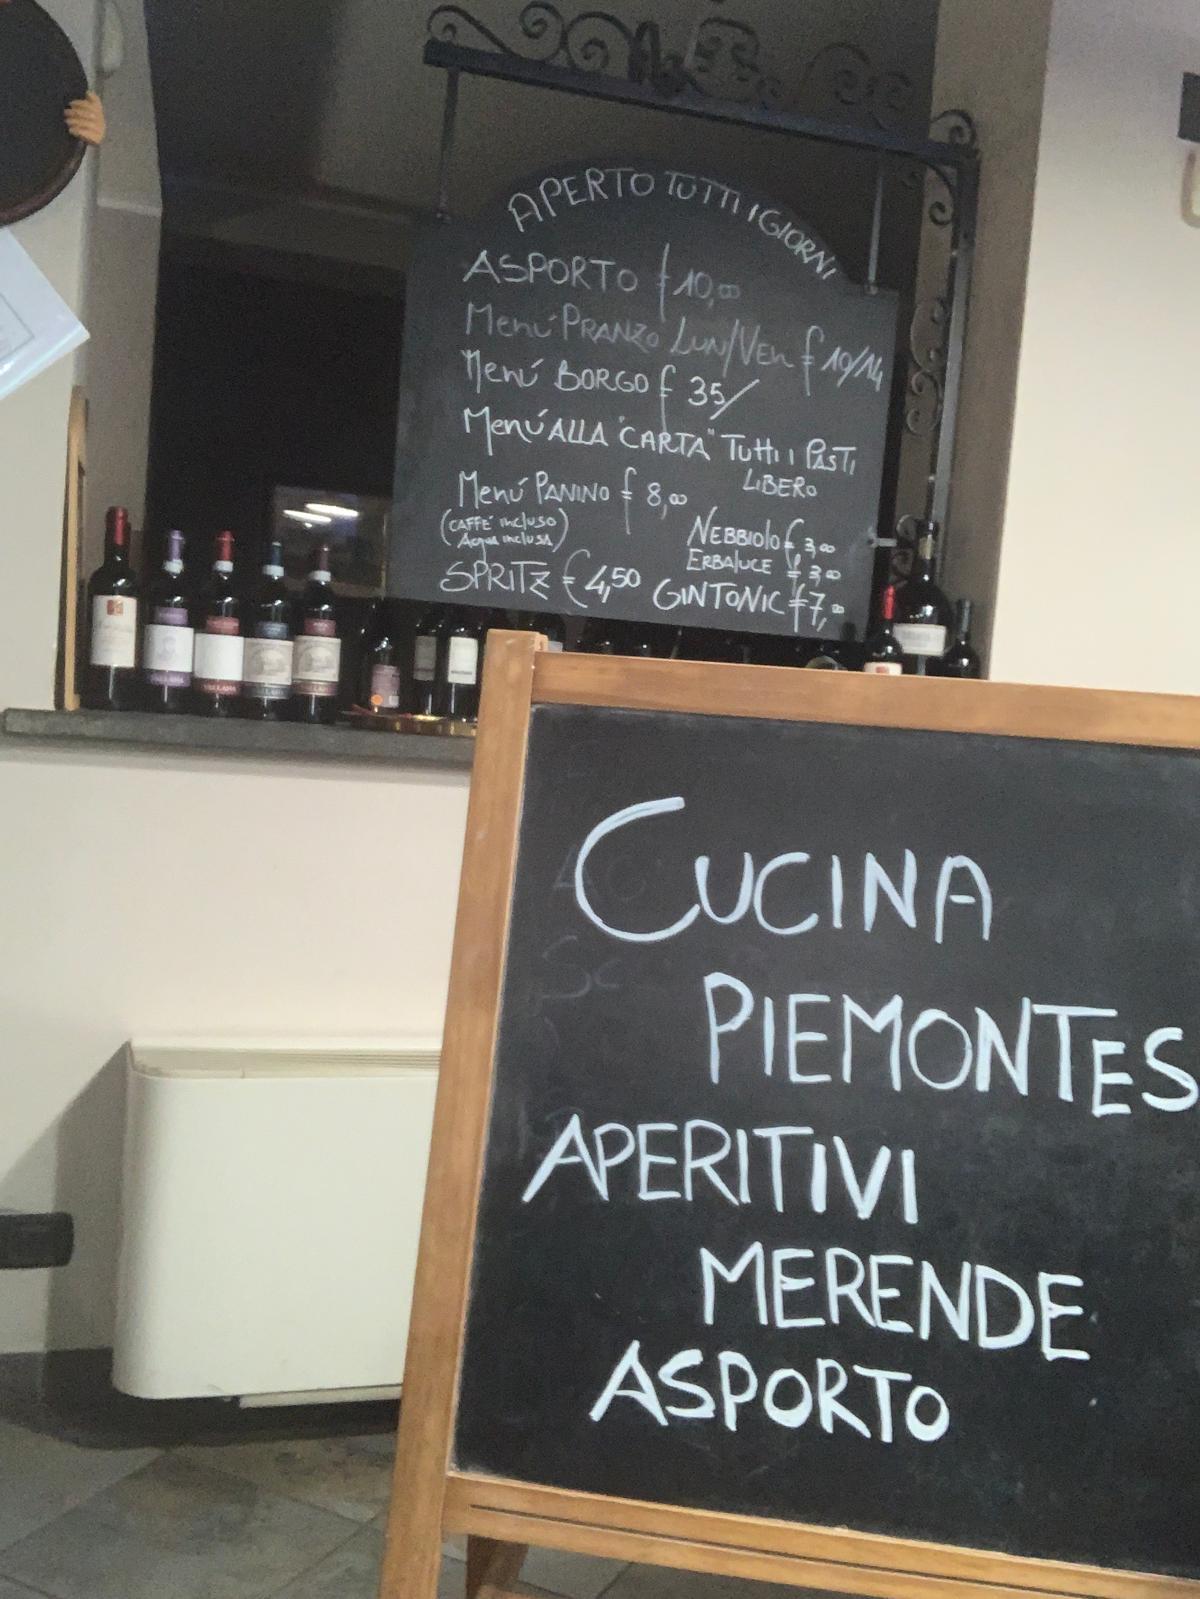 APERTO TUTTI I GIORNI
ASPORTO € 10,00
Menú PRANZO LUN/VEN € 10/14
Menú BORGO € 35/
Menú ALLA "CARTA" TUTTI I PASTI
LIBERO
Menú PANINO € 8,00
(CAFFE' incluso
Acqua inclusa)
NEBBIOLO € 3,00
ERBALUCE € 3,00
SPRITZ € 4,50 GINTONIC € 7,00
CUCINA
PIEMONTES
APERITIVI
MERENDE
ASPORTO